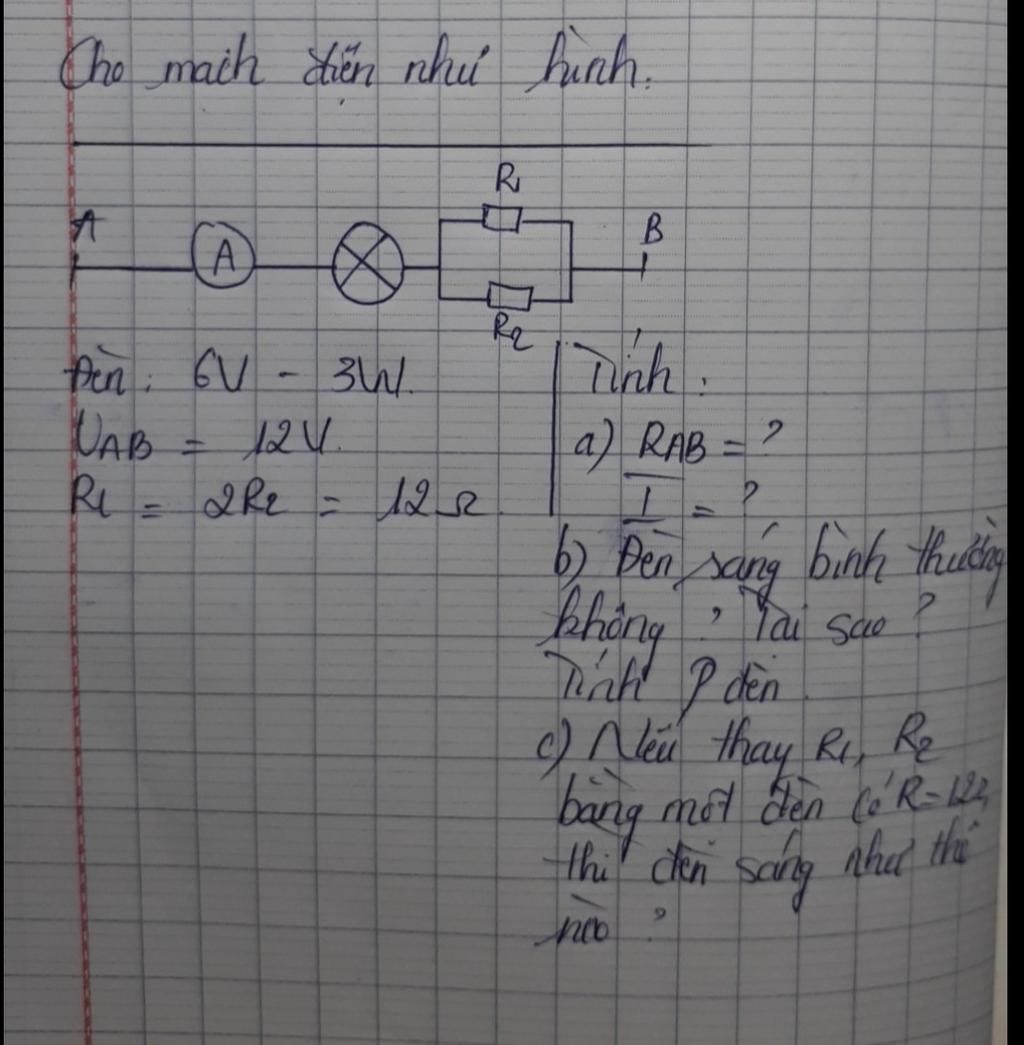 Cho mạch điện như hình.
R1
A
A
B
R2
Đèn: 6V - 3W.
UAB = 12V.
R1 = 2R2 = 12Ω.
Tính:
a) RAB = ?
I = ?
b) Đèn sáng bình thường
không? Tại sao?
Tính P đèn.
c) Nếu thay R1, R2
bằng một đèn có R=12Ω,
thì đèn sáng như thế
nào?